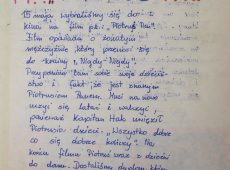 15 maja wybraliśmy się do
kina film pt.: "Piotruś Pan".
Film opowiada o żonatym
mężczyźnie, który przeniósł się
do krainy "Nigdy Nigdy".
Przypomniał tam sobie swoje dzieciń-
stwo i fakt, że jest znanym
Piotrusiem Panem. Musi na nowo
uczyć się latać i walczyć,
ponieważ Kapitan Hak uwięził
Piotrusia dzieci. "Wszystko dobre
co się dobrze kończy". Na
końcu filmu Piotruś wraz z dziećmi
do domu. Dostaliśmy